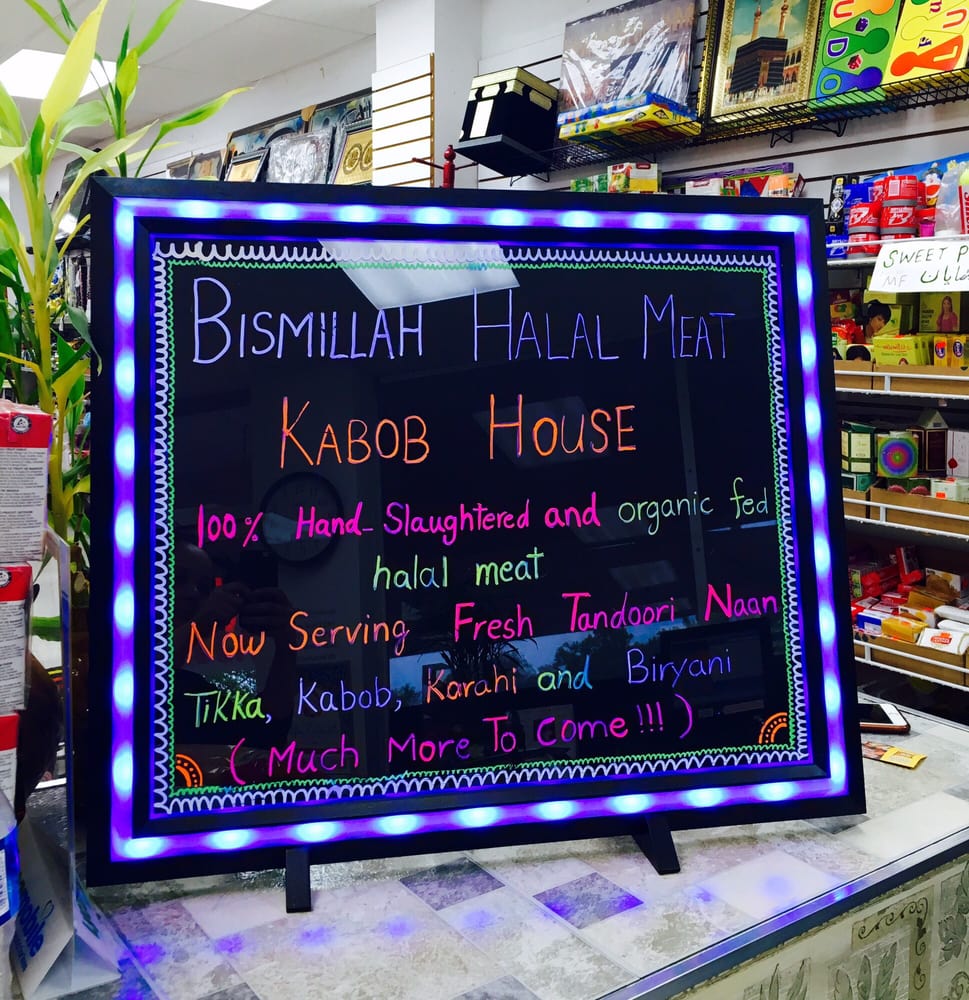 BISMILLAH HALAL MEAT
KABOB HOUSE
100% Hand-Slaughtered and organic fed
halal meat
Now Serving Fresh Tandoori Naan
Tikka, Kabob, Karahi and Biryani
(Much More To Come!!!)
SWEET P
LUDO